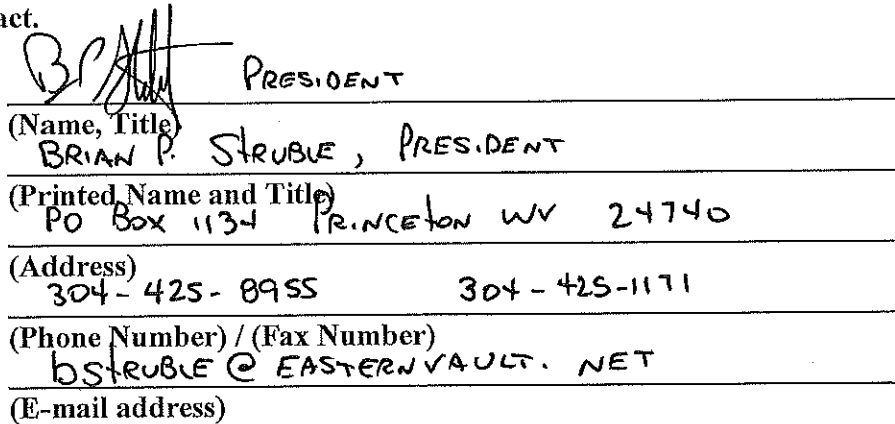 act.
PRESIDENT
(Name, Title)
BRIAN P. STRUBLE, PRESIDENT
(Printed Name and Title)
PO BOX 1134 PRINCETON WV 24740
(Address)
304-425-8955 304-425-1171
(Phone Number) / (Fax Number)
bSTRUBLE @ EASTERNVAULT. NET
(E-mail address)